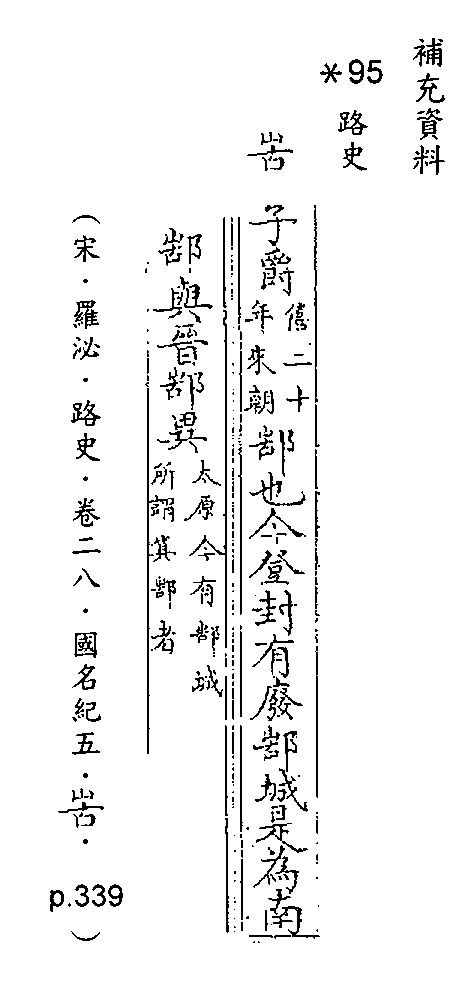 補充資料
*95
路史
告
子爵僖二十年來朝郜也今登封有廢郜城是為南
郜與晉郜異太原今有郜城所謂箕郜者
(宋・羅泌・路史・卷二八・國名紀五・告・p.339)